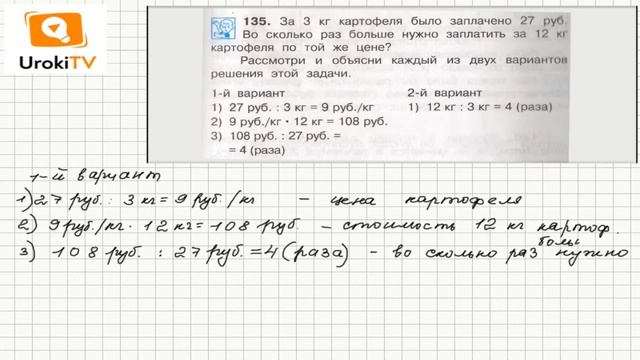 UrokiTV
135. За 3 кг картофеля было заплачено 27 руб.
Во сколько раз больше нужно заплатить за 12 кг
картофеля по той же цене?
Рассмотри и объясни каждый из двух вариантов
решения этой задачи.
1-й вариант
1) 27 руб. : 3 кг = 9 руб./кг
2) 9 руб./кг · 12 кг = 108 руб.
3) 108 руб. : 27 руб. =
= 4 (раза)
2-й вариант
1) 12 кг : 3 кг = 4 (раза)
1-й вариант
1) 27 руб. : 3 кг = 9 руб./кг - цена картофеля
2) 9 руб./кг · 12 кг = 108 руб. - стоимость 12 кг картоф.
3) 108 руб. : 27 руб. = 4 (раза) - во сколько раз больш нужно